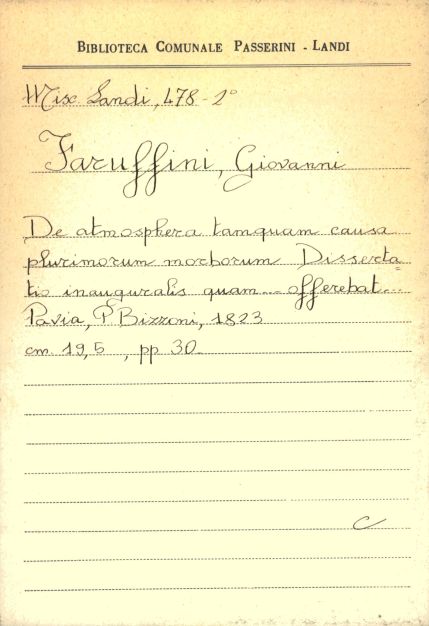 BIBLIOTECA COMUNALE PASSERINI - LANDI
Misc Landi, 478 - 2°
Faruffini, Giovanni
De atmosphera tamquam causa
plurimorum morborum Disserta=
tio inauguralis quam... offerebat...
Pavia, P. Bizzoni, 1823
cm. 19,5 , pp 30
C